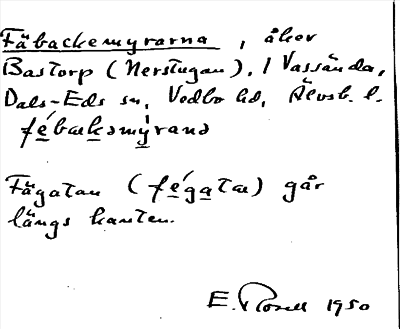 Fäbackemyrarna, åker
Bastorp (Nerstugan), 1 Vassända,
Dals-Eds sn, Vedbo hd, Älvsb. l.
fébackəmýrənə
Fägatan (fégata) går
längs kanten.
E. Rosell 1950